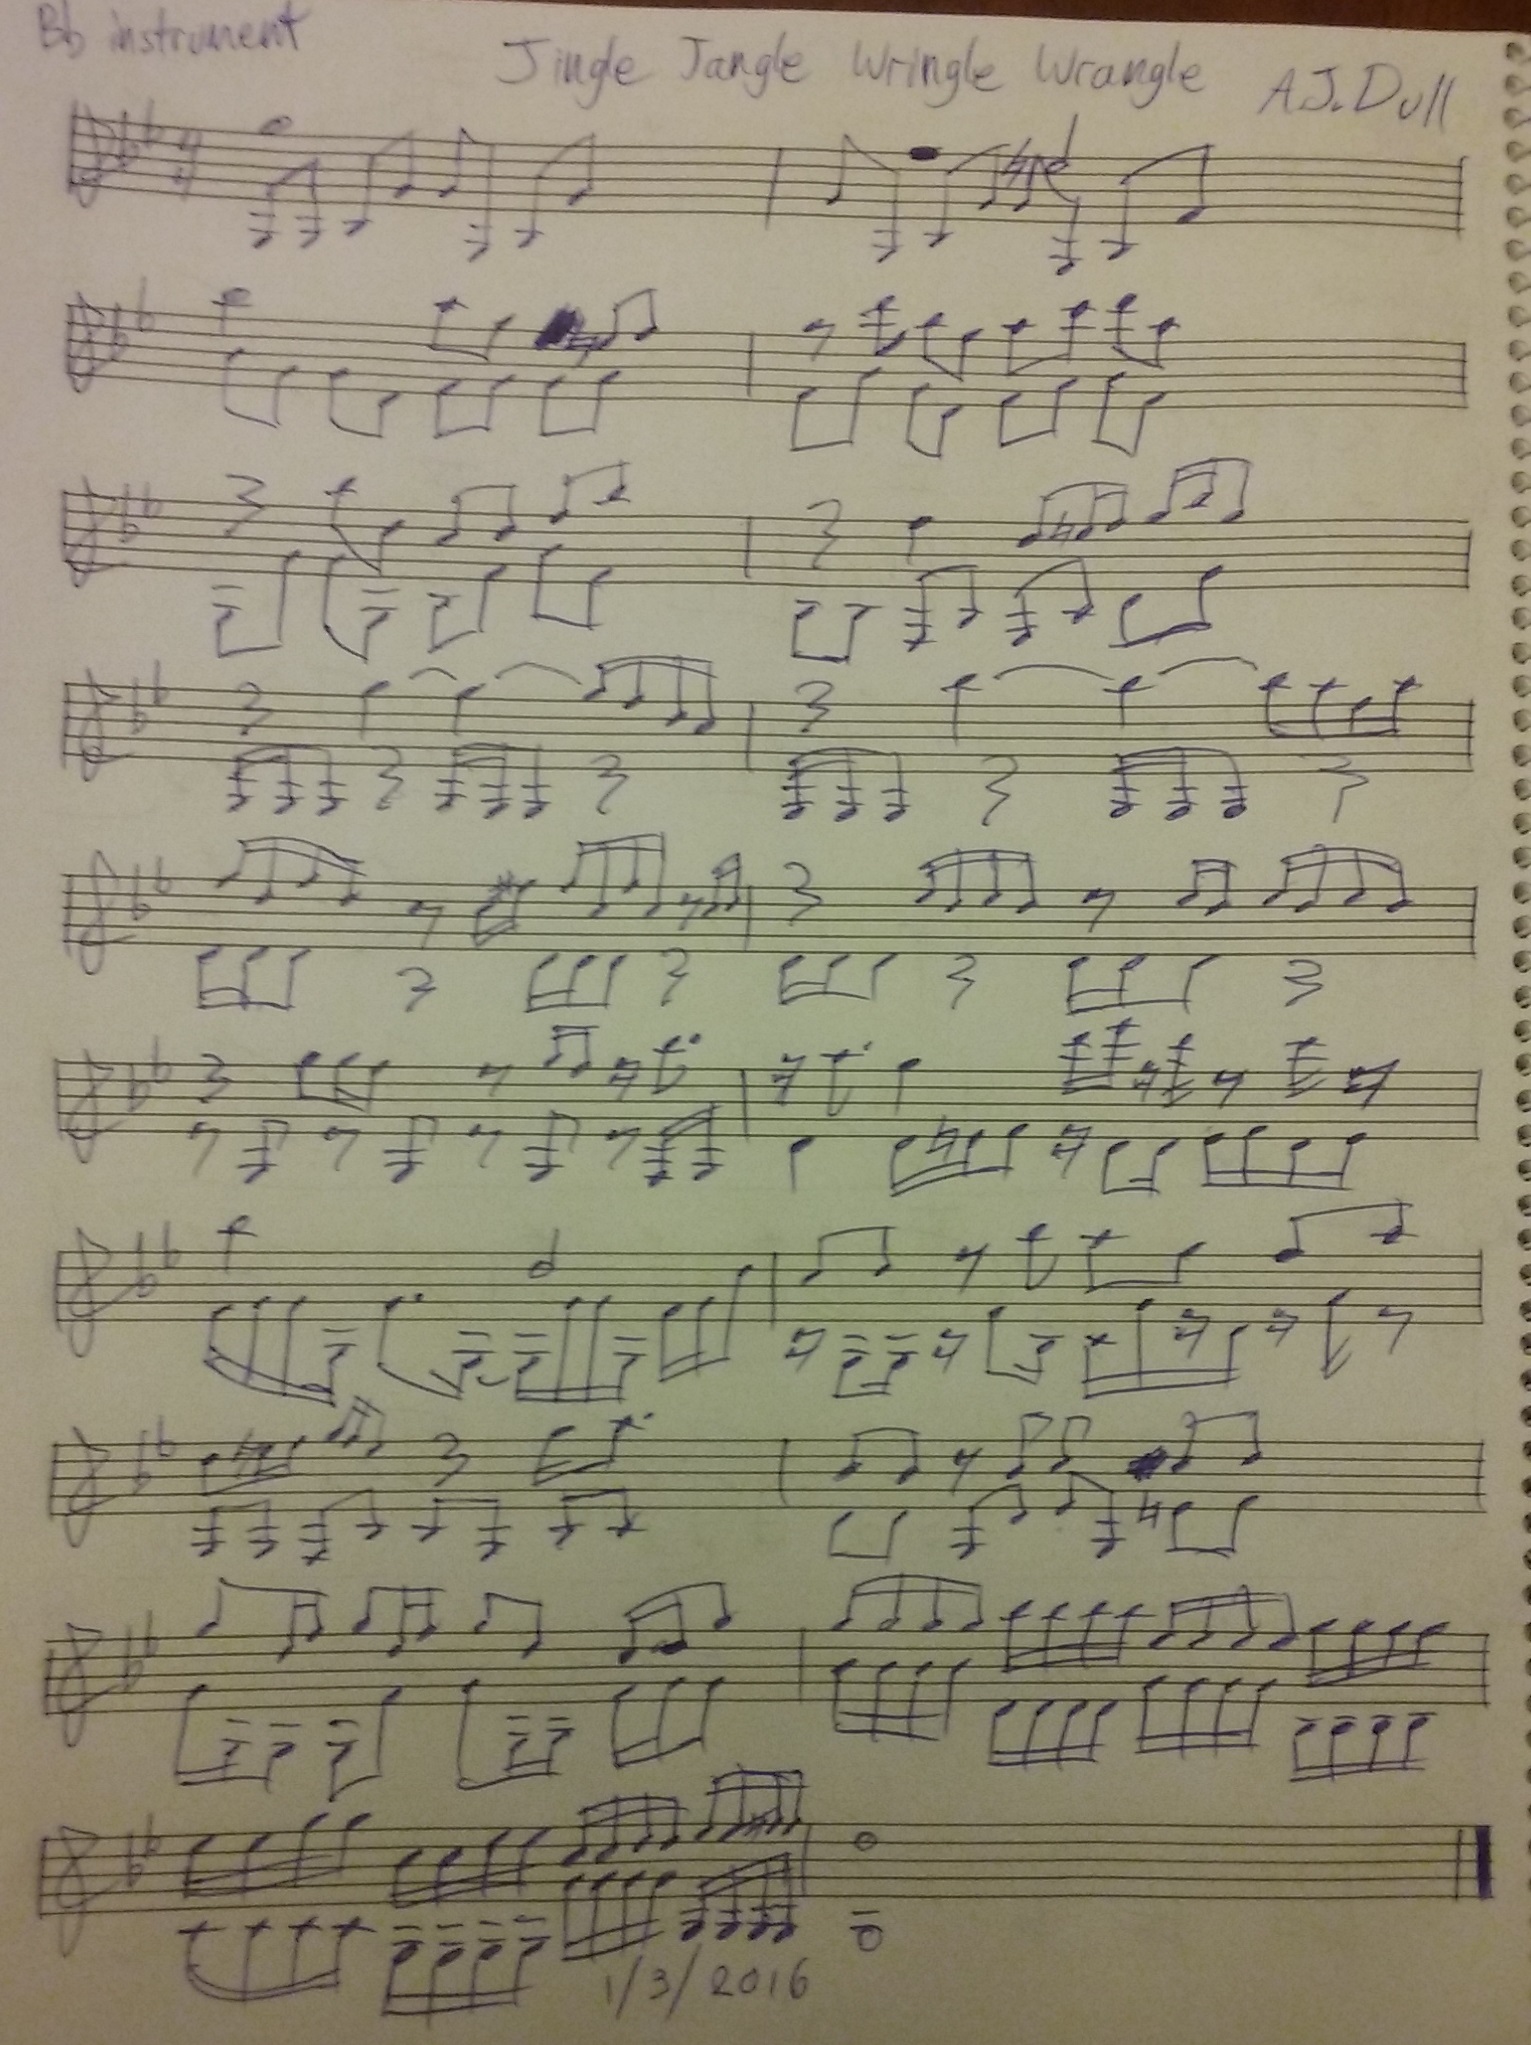 Bb instrument
Jingle Jangle Wringle Wrangle
A.J. Dull
1/3/2016